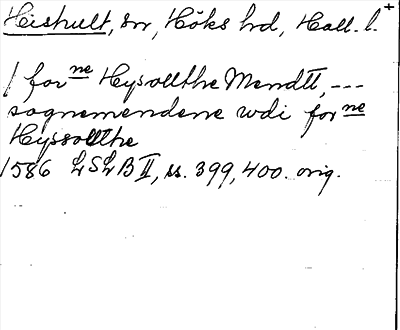 Hishult, sn, Höks hd, Hall. l. +
/ for ne Hysollthe Mendtt, ---
sognemendene wdi for ne
Hyssollthe
1586 LSLB II, ss. 399, 400. orig.